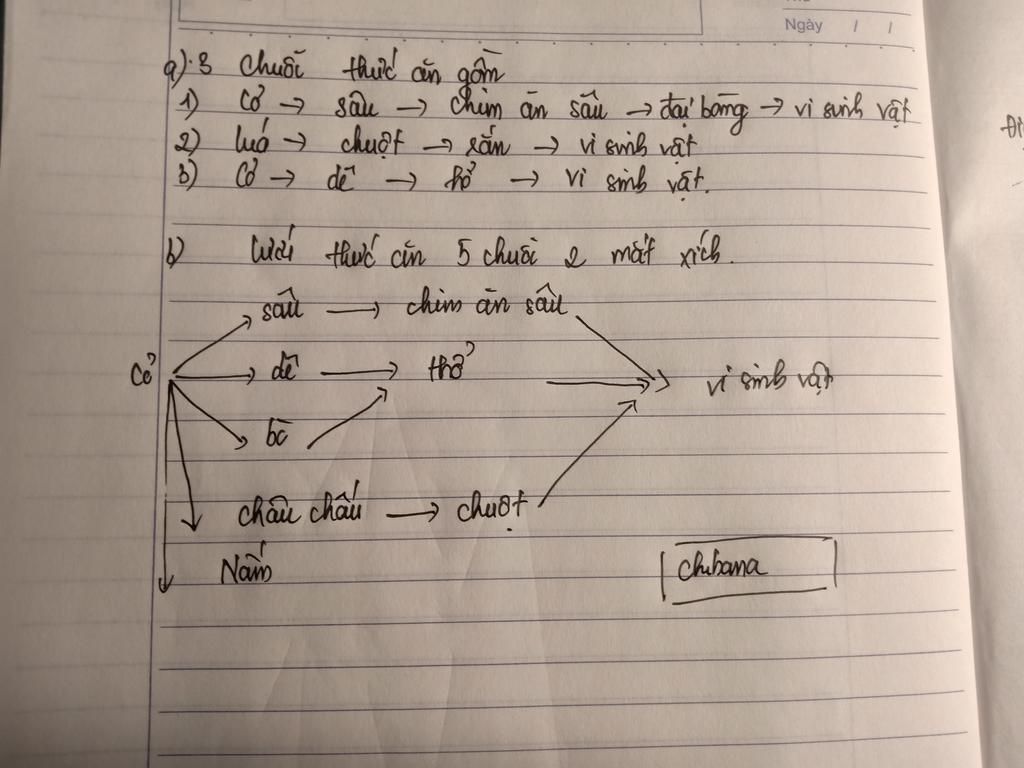 Ngày / /
a). 3 chuỗi thức ăn gồm
1) Cỏ → sâu → chim ăn sâu → đại bàng → vi sinh vật
2) lúa → chuột → rắn → vi sinh vật
3) Cỏ → dế → thỏ → vi sinh vật.
b) lưới thức ăn 5 chuỗi 2 mắt xích.
sâu → chim ăn sâu
Cỏ → dế → thỏ → vi sinh vật
bò
châu chấu → chuột
Nấm
chibana